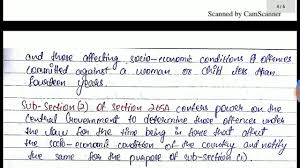 6/6
Scanned by CamScanner
and those affecting socio-economic conditions & offences
committed against a woman or child less than
fourteen years.
Sub-Section(2) of Section 265A confers power on the
Central Government to determine those offences under
the law for the time being in force that affect
the socio-economic condition of the country and notify
the same for the purpose of sub-section(1)